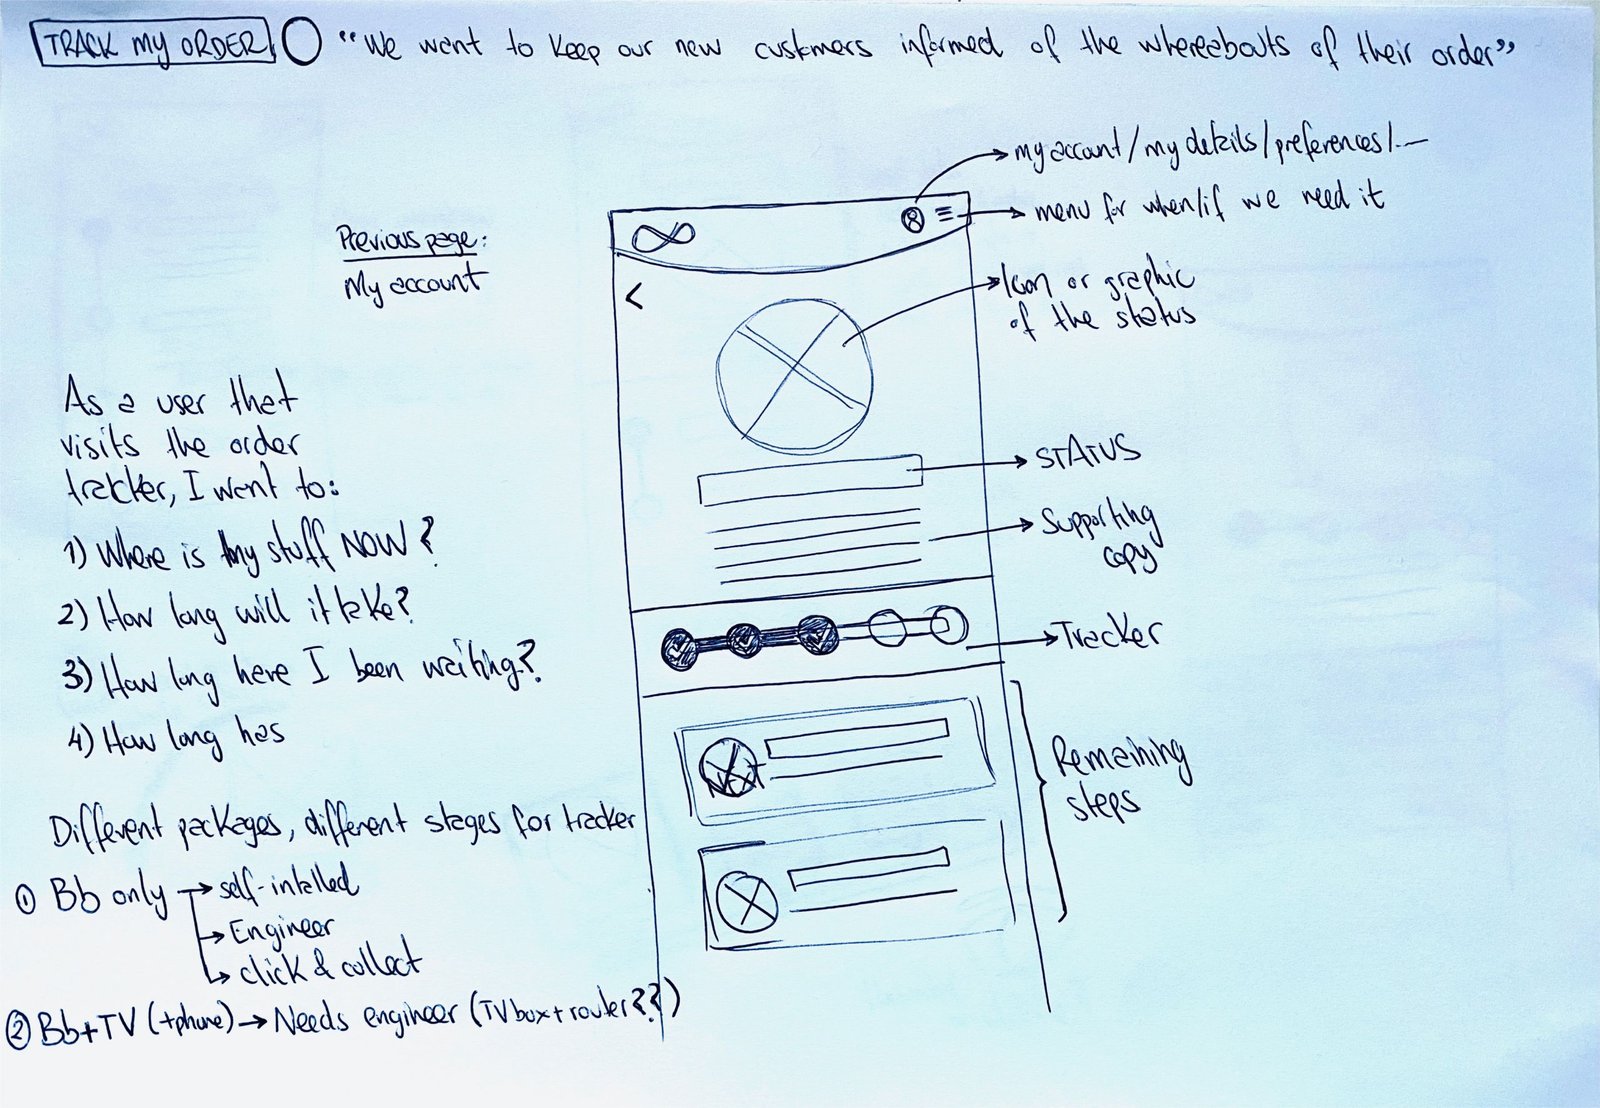 TRACK MY ORDER "We want to keep our new customers informed of the whereabouts of their order"
my account/my details/preferences/...
menu for when/if we need it
Previous page:
My account
Icon or graphic
of the status
As a user that
visits the order
tracker, I want to:
1) Where is my stuff NOW?
2) How long will it take?
3) How long have I been waiting?
4) How long has
STATUS
Supporting
copy
Tracker
NEXT
Remaining
steps
Different packages, different stages for tracker
① Bb only → self-intalled
→ Engineer
→ click & collect
② Bb+TV (+phone) → Needs engineer (TV box + router??)